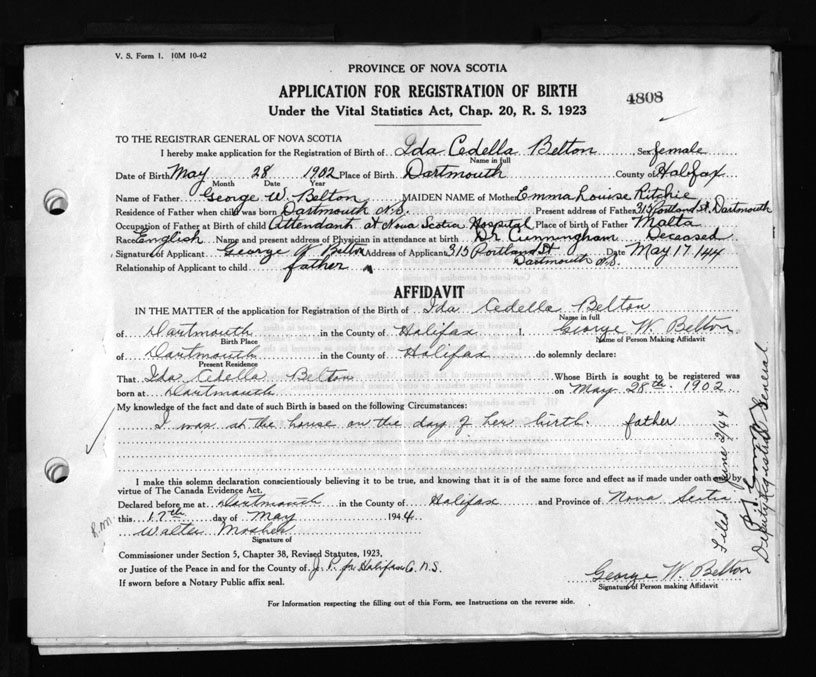 V. S. Form 1. 10M 10-42
PROVINCE OF NOVA SCOTIA
APPLICATION FOR REGISTRATION OF BIRTH
4808
Under the Vital Statistics Act, Chap. 20, R. S. 1923
TO THE REGISTRAR GENERAL OF NOVA SCOTIA
I hereby make application for the Registration of Birth of Ida Cedella Belton, Sex female
Name in full
Date of Birth May 28 1902 Place of Birth Dartmouth County of Halifax
Month Date Year
Name of Father George W. Belton MAIDEN NAME of Mother Emma Louise Ritchie
Residence of Father when child was born Dartmouth N.S. Present address of Father 315 Portland St. Dartmouth
Occupation of Father at Birth of child Attendant at Nova Scotia Hospital Place of birth of Father Malta
Race English Name and present address of Physician in attendance at birth Dr Cunningham Deceased
Signature of Applicant George W Belton Address of Applicant 315 Portland St Date May 17/44
Dartmouth N.S.
Relationship of Applicant to child father
AFFIDAVIT
IN THE MATTER of the application for Registration of the Birth of Ida Cedella Belton
Name in full
of Dartmouth in the County of Halifax I, George W. Belton
Birth Place Name of Person Making Affidavit
of Dartmouth in the County of Halifax do solemnly declare:
Present Residence
That Ida Cedella Belton Whose Birth is sought to be registered was
born at Dartmouth on May 28th 1902
My knowledge of the fact and date of such Birth is based on the following Circumstances:
I was at the house on the day of her birth. father
I make this solemn declaration conscientiously believing it to be true, and knowing that it is of the same force and effect as if made under oath and by
virtue of The Canada Evidence Act.
Declared before me at Dartmouth in the County of Halifax and Province of Nova Scotia
this 17th day of May 1944
Walter Mosher
Signature of
Commissioner under Section 5, Chapter 38, Revised Statutes, 1923,
or Justice of the Peace in and for the County of J. P. for Halifax Co. N.S.
If sworn before a Notary Public affix seal.
George W. Belton
Signature of Person making Affidavit
For Information respecting the filling out of this Form, see Instructions on the reverse side.
Filed June 2/44
Deputy Registrar General